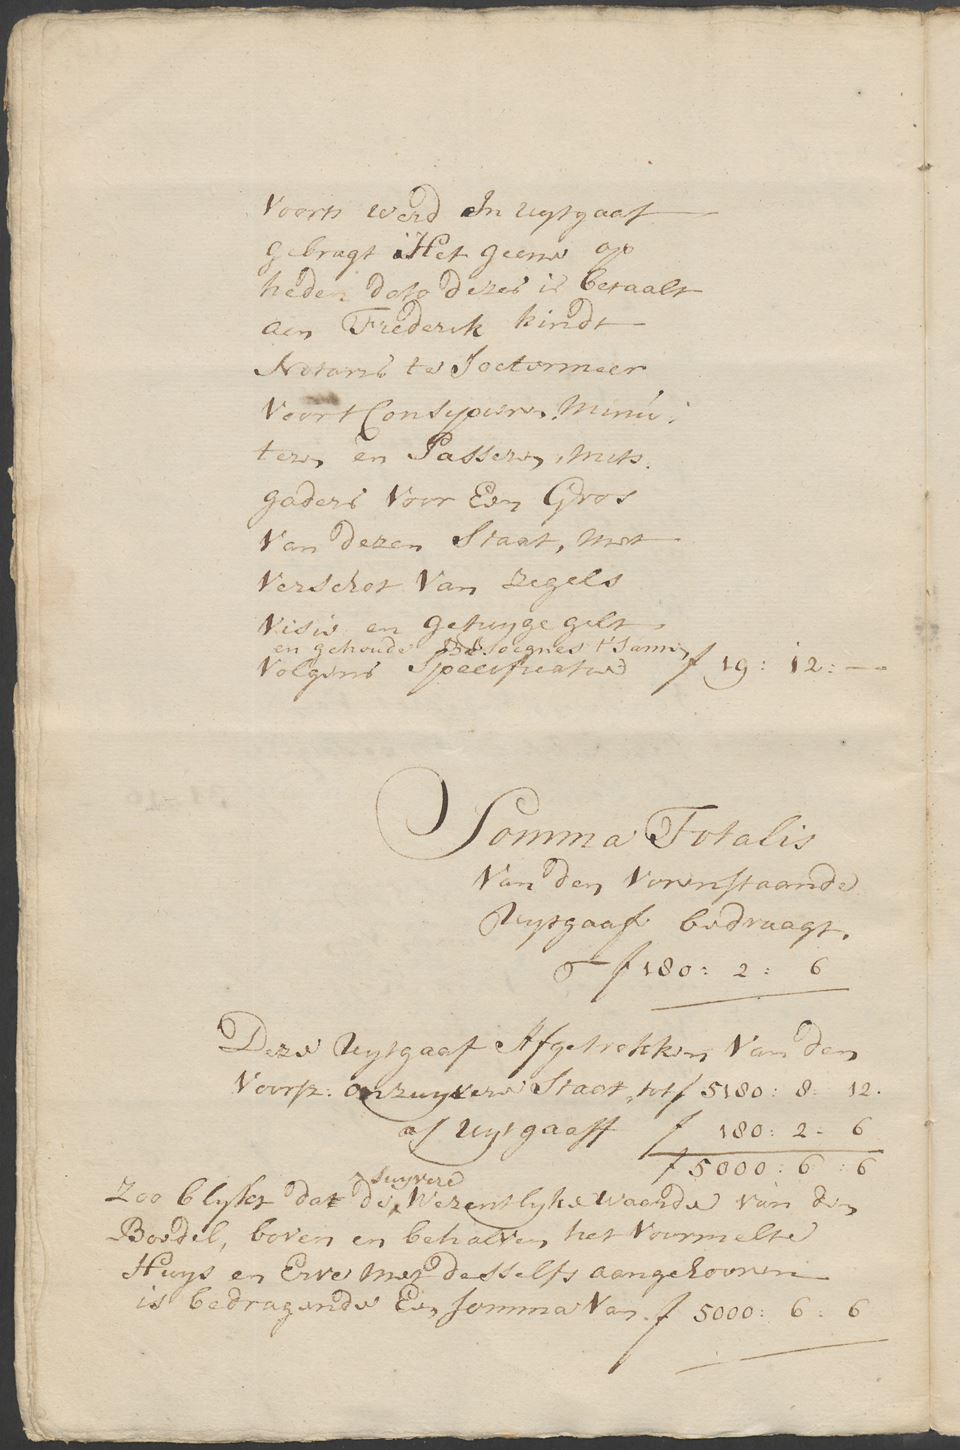 Voorts werd In uytgaaf
gebragt Het geene op
heden dato dezes is betaalt
aen Frederik kindt
Notaris te Soetermeer
Voor t Consipieren, Minu
teren en Passeren, mits
gaders Voor Een Gros
Van dezen Staat, met
Verschot Van Zegels
Visie en getuyge gelt
en gehoude Besoegnes t' Samen
Volgens Specificatie f 19: 12: —
Somma Totalis
Van den Vorenstaande
Uytgaaf bedraagt.
f 180: 2: 6
Deze Uytgaaf Afgetrekken Van den
Voorsz. onzuyvere Staat, tot f 5180: 8: 12.
af Uytgaaff f 180: 2: 6
f 5000: 6: 6
suyvere
Zoo blykt dat de Wezentlyke waarde van den
Boedel, boven en behalven het Voormelte
Huys en Erve met desselfs aangehooren
is bedragende Een somma Van f 5000: 6: 6